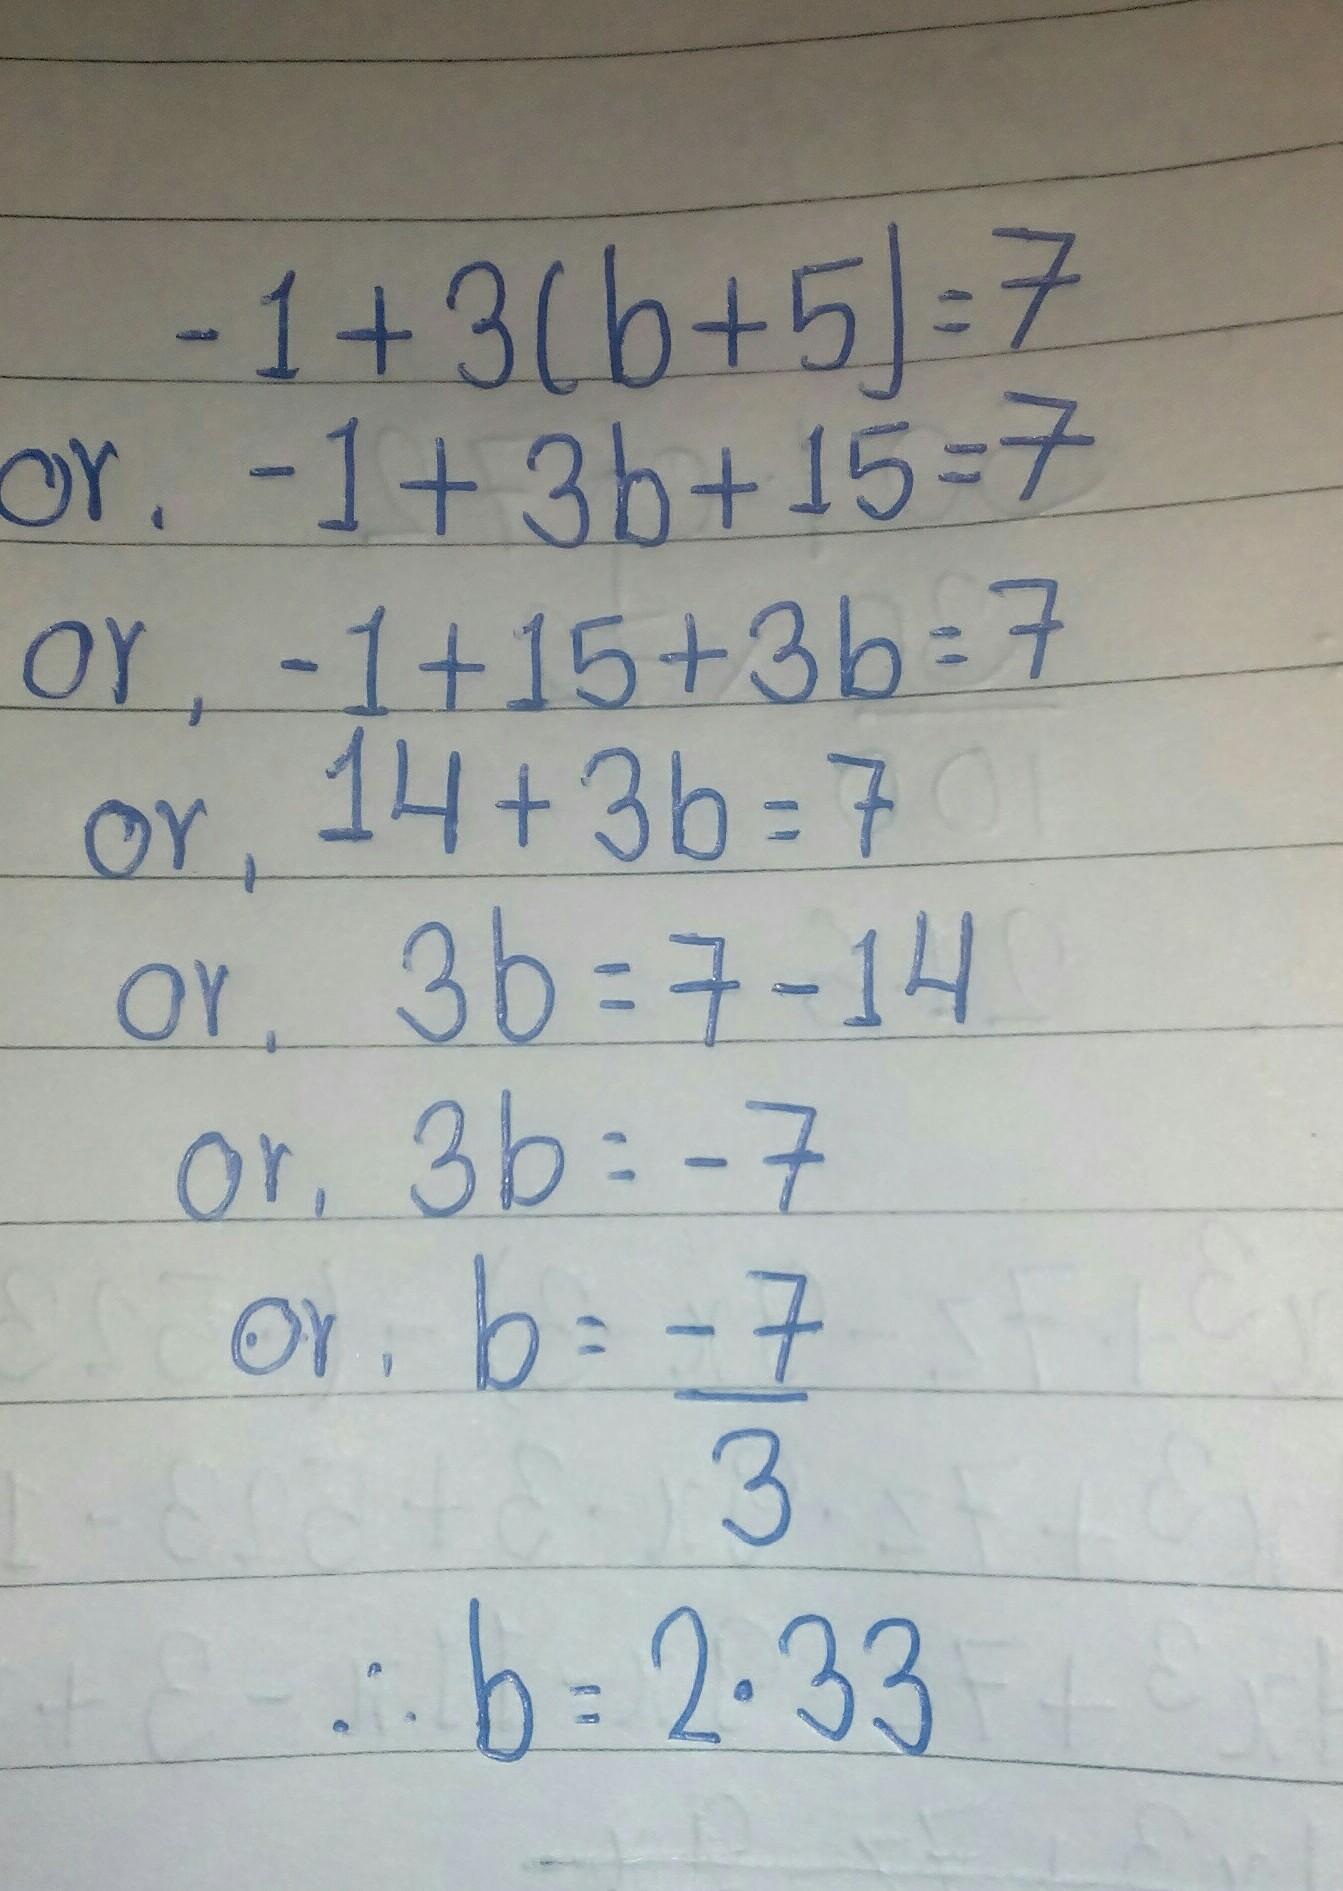 -1+3(b+5)=7
or. -1+3b+15=7
or, -1+15+3b=7
or, 14+3b=7
or, 3b=7-14
or, 3b=-7
or, b=-7
3
∴ b=2.33